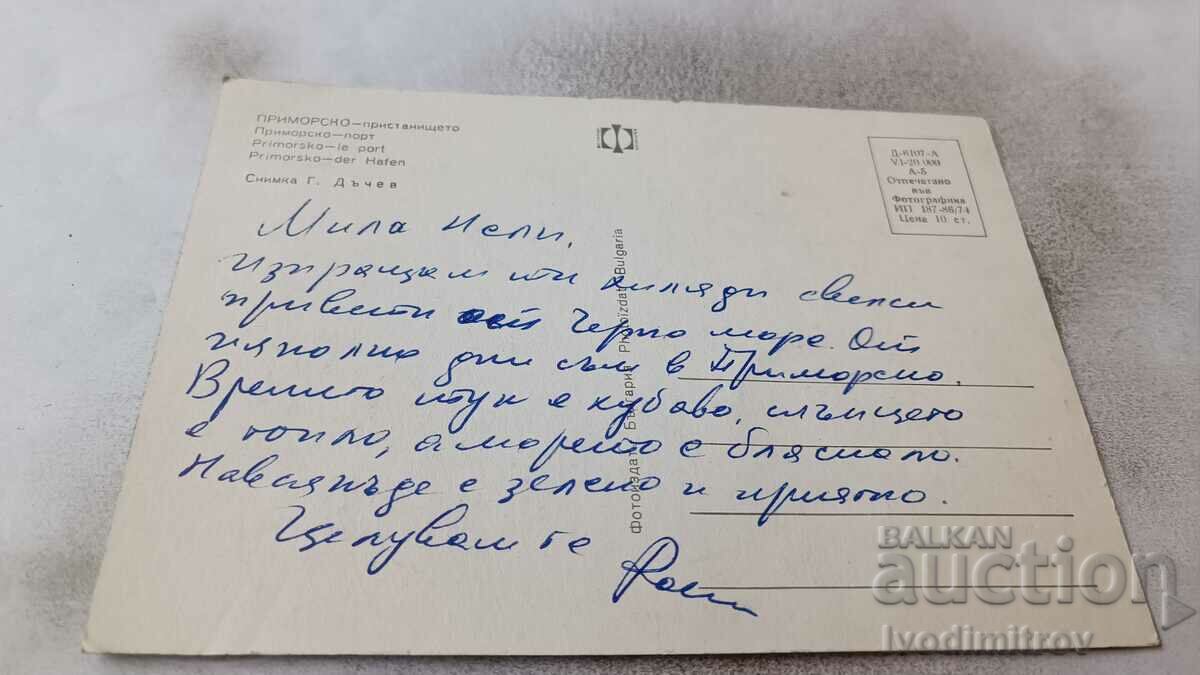 ПРИМОРСКО—пристанището
Приморско—порт
Primorsko—le port
Primorsko—der Hafen
Снимка Г. Дъчев
Д-6107-А
VI-20 000
А-5
Отпечатано
във
Фотографика
ИП 187-86/74
Цена 10 ст.
Мила Нели,
Изпращам ти хиляди свежи
привети от Черно море. От
няколко дни съм в Приморско.
Времето тук е хубаво, слънцето
е топло, а морето е бляснало.
Навсякъде е зелено и приятно.
Целувам те
Фотоиздат България Photoïzdat Bulgaria
BALKAN
auction
Ivodimitrov